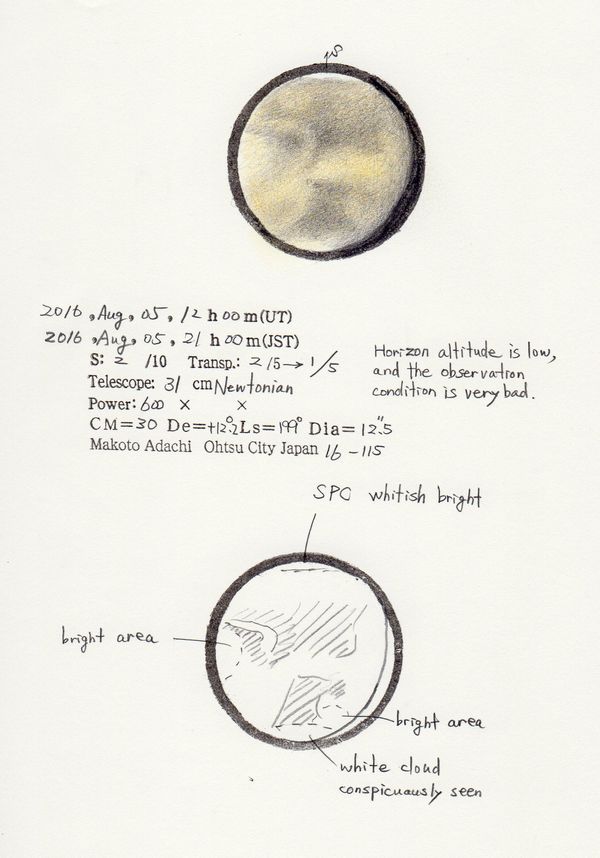 S
2016, Aug, 05, 12 h 00 m (UT)
2016, Aug, 05, 21 h 00 m (JST)
S: 2 /10 Transp.: 2/5→1/5
Telescope: 31 cm Newtonian
Power: 600 × ×
CM=30 De=+12.°2 Ls=199° Dia=12."5
Makoto Adachi Ohtsu City Japan 16-115
Horizon altitude is low,
and the observation
condition is very bad.
SPC whitish bright
bright area
bright area
white cloud
conspicuously seen